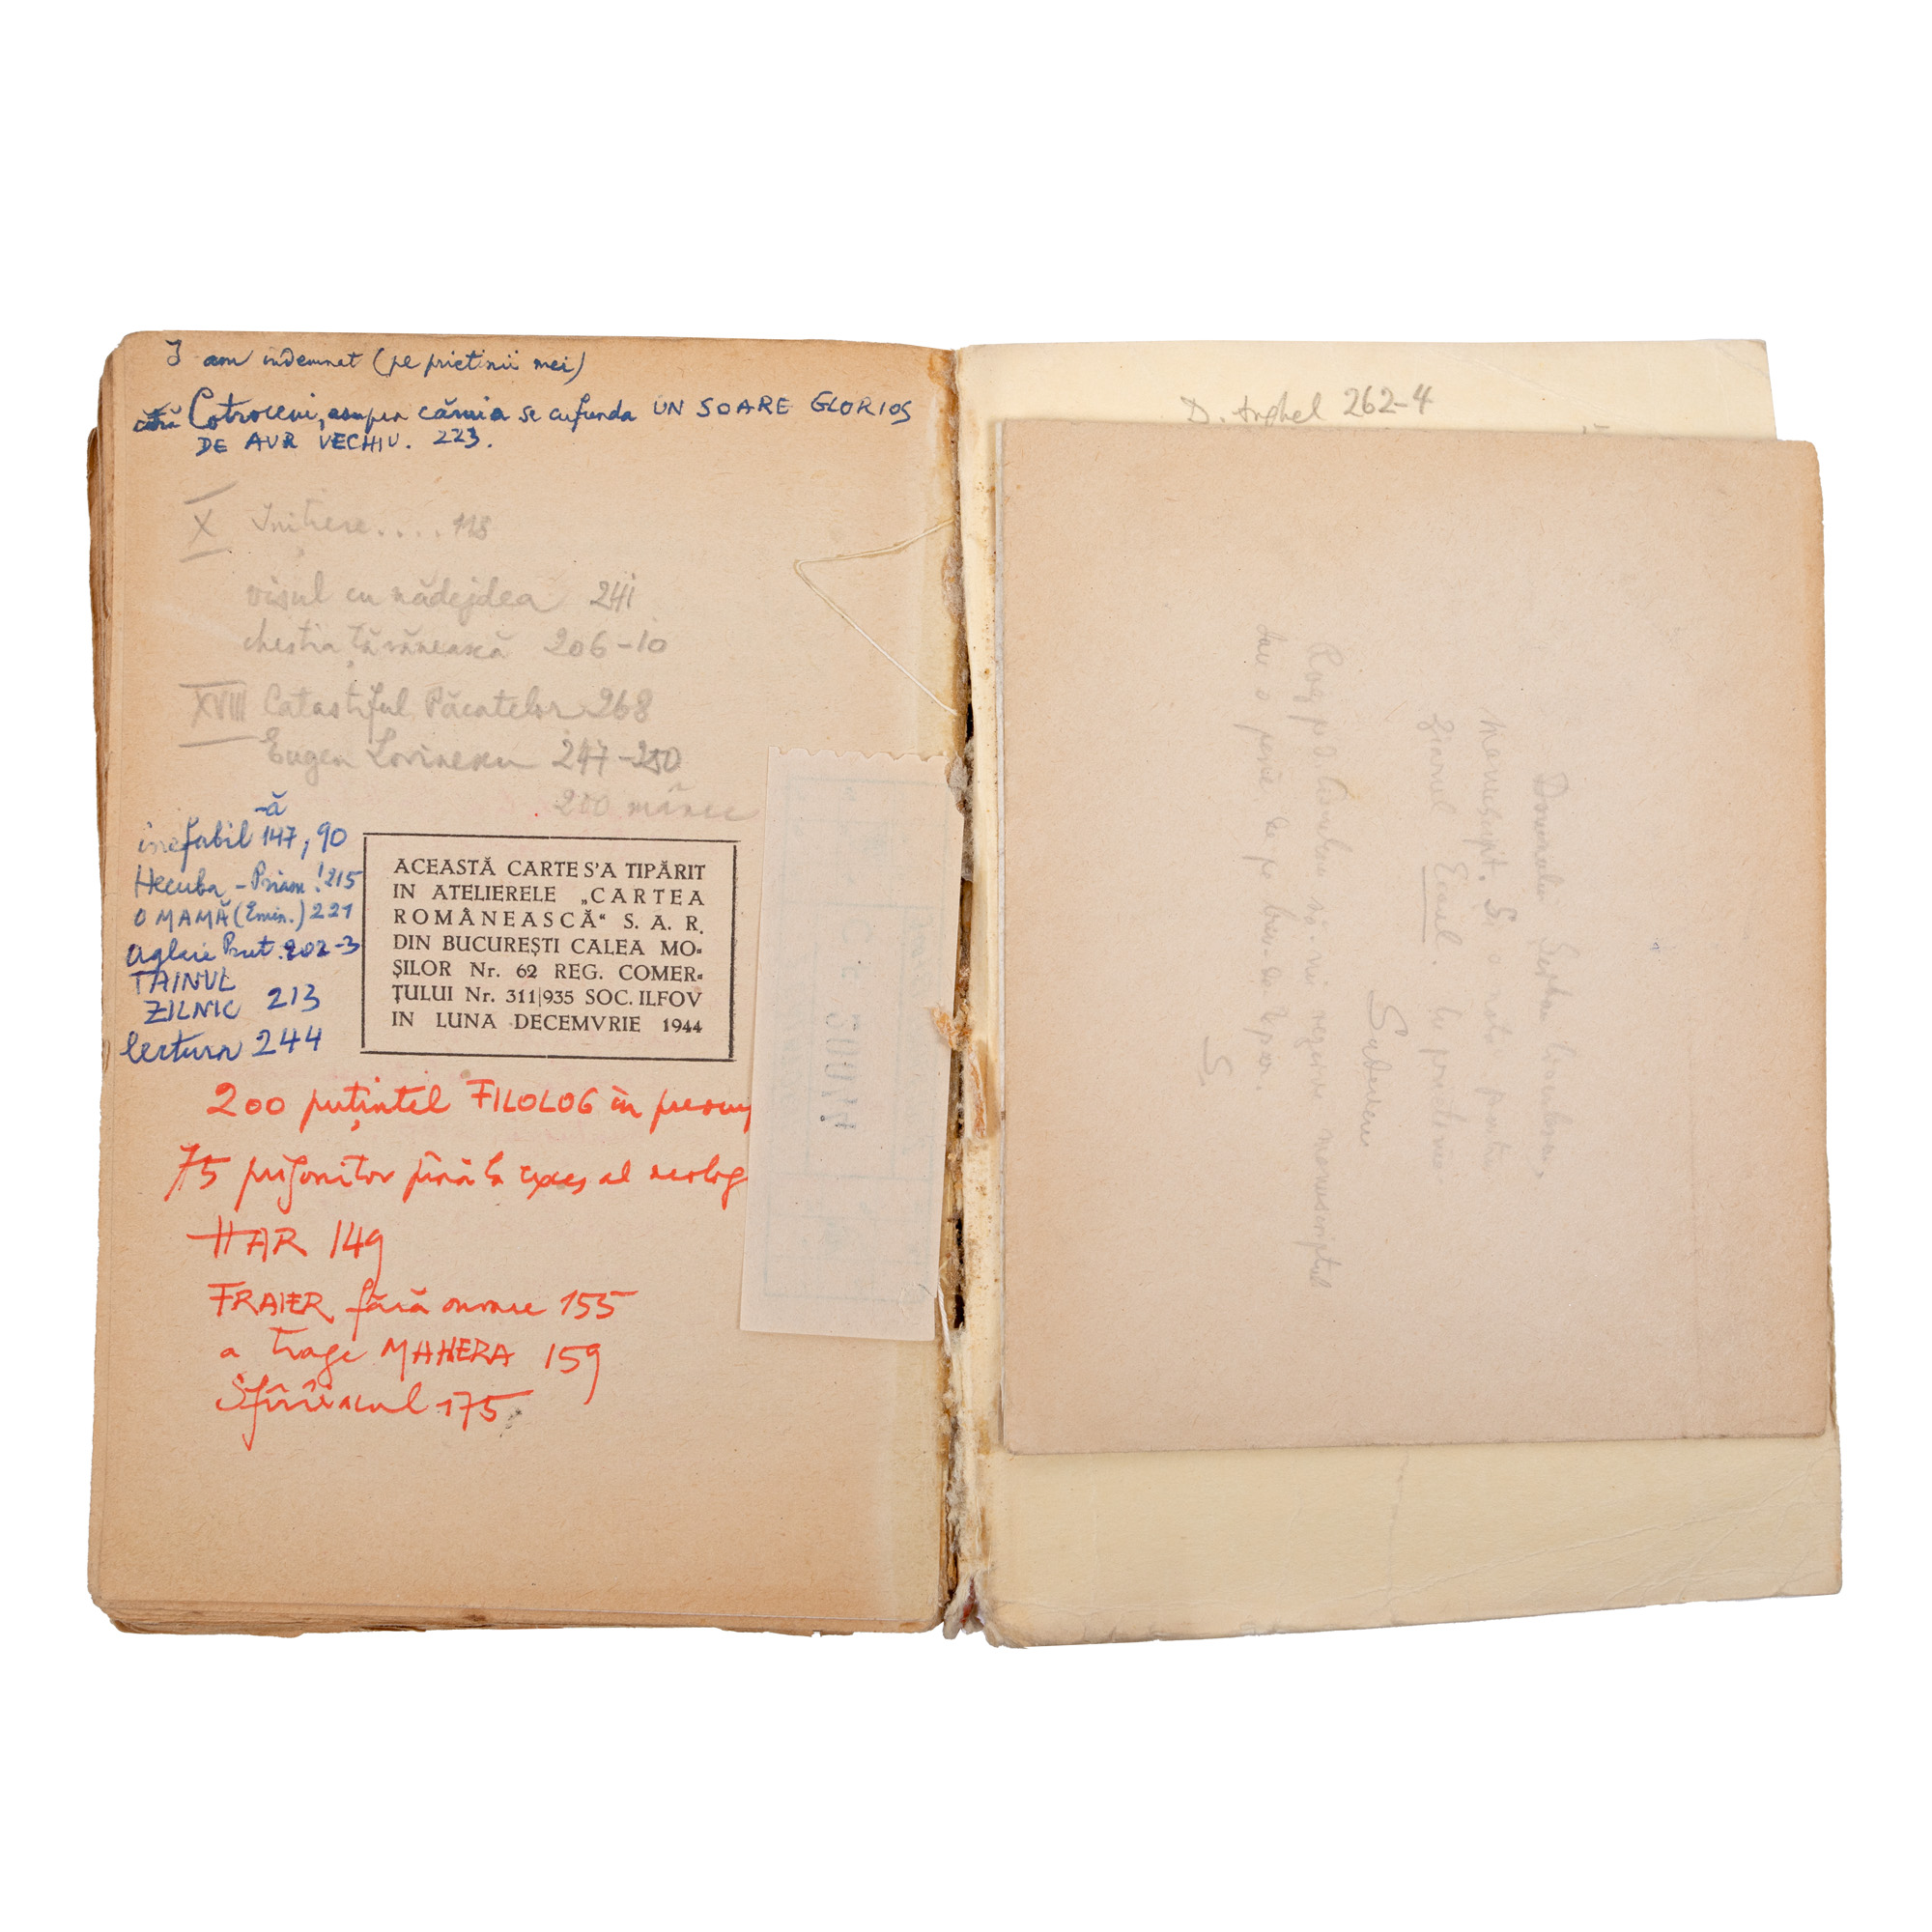 I am îndemnat (pe prietenii mei)
cătră Cotroceni, asupra căruia se cufunda UN SOARE GLORIOS
DE AUR VECHIU. 223.
X Inițiere.... 118
visul cu nădejdea 241
chestia țărănească 206-10
XVIII Catastiful Păcatelor 268
Eugen Lovinescu 247-250
200 mânce
-ă
inefabil 147, 90
Hecuba - Priam! 215
O MAMĂ (Emin.) 221
Aglaie Prut. 202-3
TAINUL
ZILNIC 213
lectura 244
ACEASTĂ CARTE S'A TIPĂRIT
IN ATELIERELE „CARTEA
ROMÂNEASCĂ“ S. A. R.
DIN BUCUREȘTI CALEA MO-
ȘILOR Nr. 62 REG. COMER-
ȚULUI Nr. 311|935 SOC. ILFOV
IN LUNA DECEMVRIE 1944
200 puțintel FILOLOG în preocup
75 prigonitor până la exces al neolog
HAR 149
FRAIER fără onoare 155
a trage MAHERA 159
Sfîrîiacul 175
D. Anghel 262-4
Domnului
manuscript. Și o notă pentru
ziarul Ecoul. Cu prietenie
Sadoveanu
Rog pe D. să-mi rezerve manuscriptul
sau o pene, de pe biu-de tipar.
S.